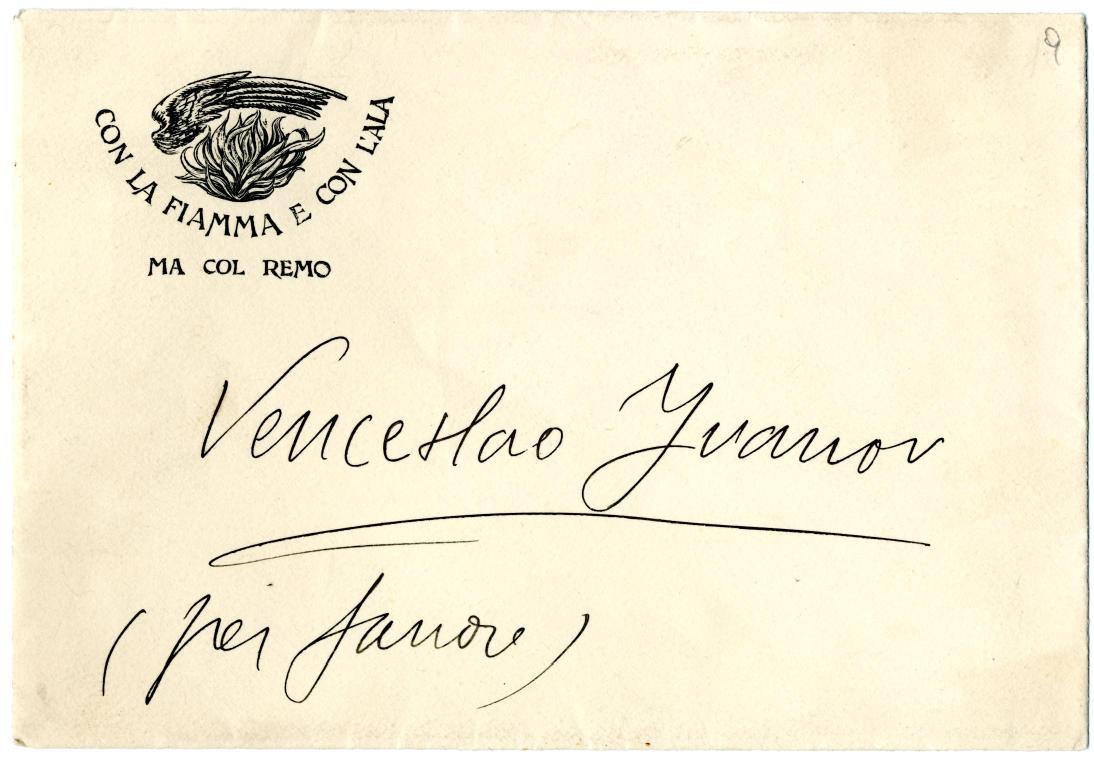 9
CON LA FIAMMA E CON L'ALA
MA COL REMO
Venceslao Yvanov
(per favore)